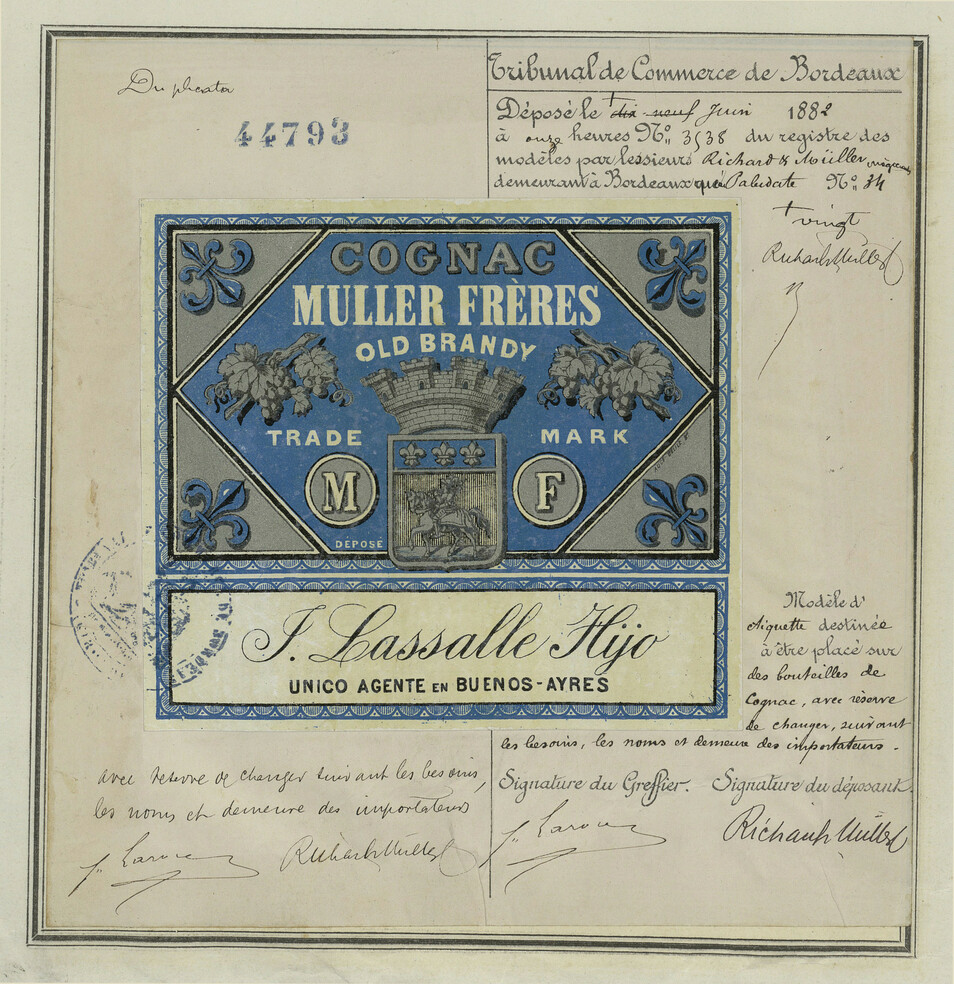 Duplicata
44793
Tribunal de Commerce de Bordeaux
Déposé le + dix-neuf Juin 1882
à onze heures N° 3538 du registre des
modèles par lessieurs Richard & Müller
demeurant à Bordeaux Paludate N° 34
+ vingt
Richard Müller
COGNAC
MULLER FRÈRES
OLD BRANDY
TRADE MARK
M F
DÉPOSÉ
J. Lassalle Hijo
UNICO AGENTE EN BUENOS-AYRES
Modèle d'
étiquette destinée
à être placé sur
des bouteilles de
Cognac, avec réserve
de changer, suivant
les besoins, les noms et demeure des importateurs.
avec réserve de changer suivant les besoins,
les noms et demeure des importateurs
Signature du Greffier. Signature du déposant.
Richard Müller
Richard Müller